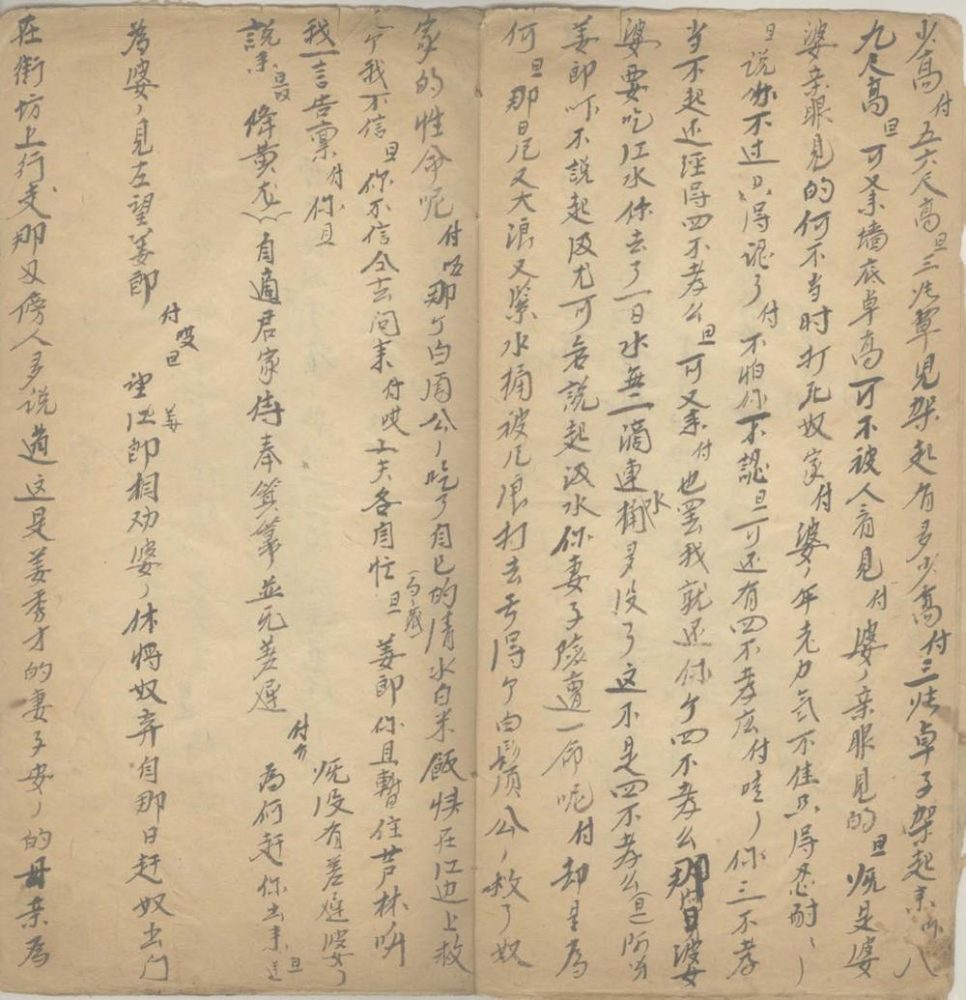 少高付五六尺高旦三張凳兒架起有多少高付三張卓子架起來八
九尺高旦可又來墻底卓高可不被人看見付婆〻亲眼見的旦既是婆
婆亲眼見的何不当时打死奴家付婆〻年老力氣不佳只得忍耐〻〻
旦说你不过只得认了付不怕你不認旦可还有四不孝庅付哇〻你三不孝
当不起还经得四不孝么旦可又来付也罢我就还你个四不孝么那日婆
婆要吃江水你去了一日水無一滴連水桶多没了这不是四不孝么旦阿呀
姜郎吓不説起汲水尤可若説起汲水你妻子險遭一命呢付却是為
何旦那日風又大浪又緊水桶被風浪打去亏得个白鬍須公〻救了奴
家的性命呢付唔那个白鬍公〻吃了自己的清水白米飯快在江边上救
个我不信旦你不信仝去问来付哎工夫各自忙旦姜郎你且暫住芦林听
我一言告禀付你且
説来旦 降黄龙 自適君家侍奉箕箒並无差遲付 既没有差遲婆〻
為何赶你出来旦
為婆〻見左望姜郎付哎旦 望姜郎相劝婆〻休將奴弃自那日赶奴出门
在街坊上行走那又傍人多说道这是姜秀才的妻子安〻的母亲為